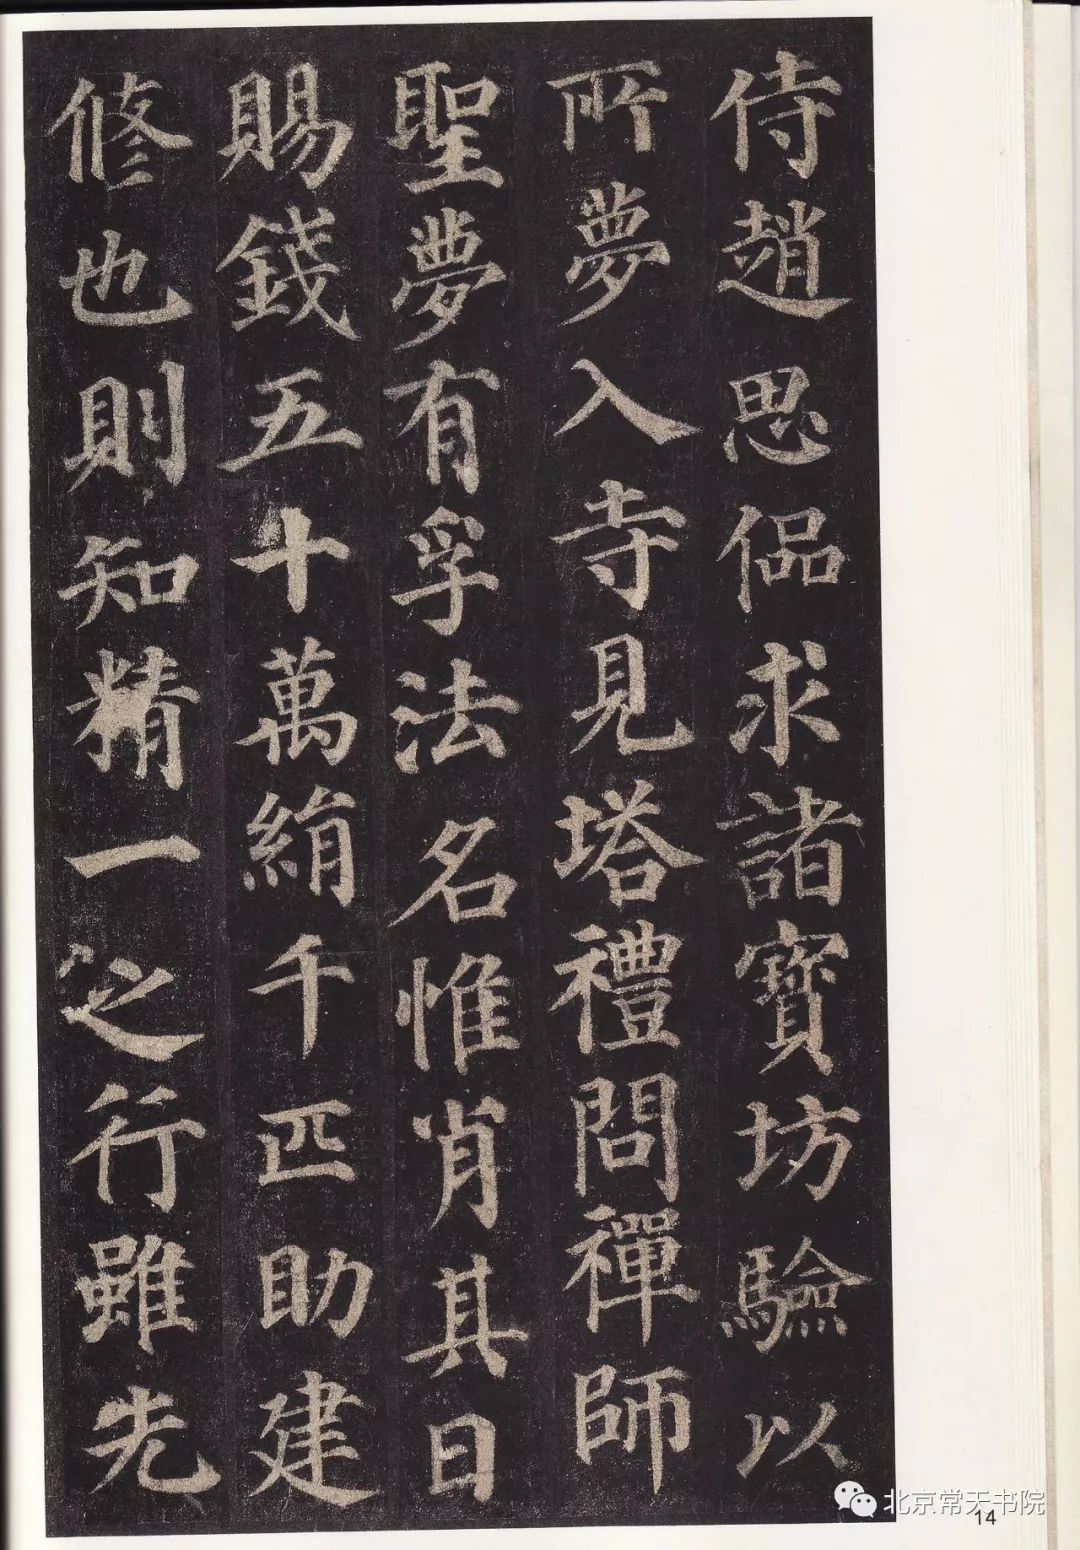 侍趙思偘求諸寶坊驗以
所夢入寺見塔禮問禪師
聖夢有孚法名惟肖其日
賜錢五十萬絹千匹助建
修也則知精一之行雖先
北京常天书院
14